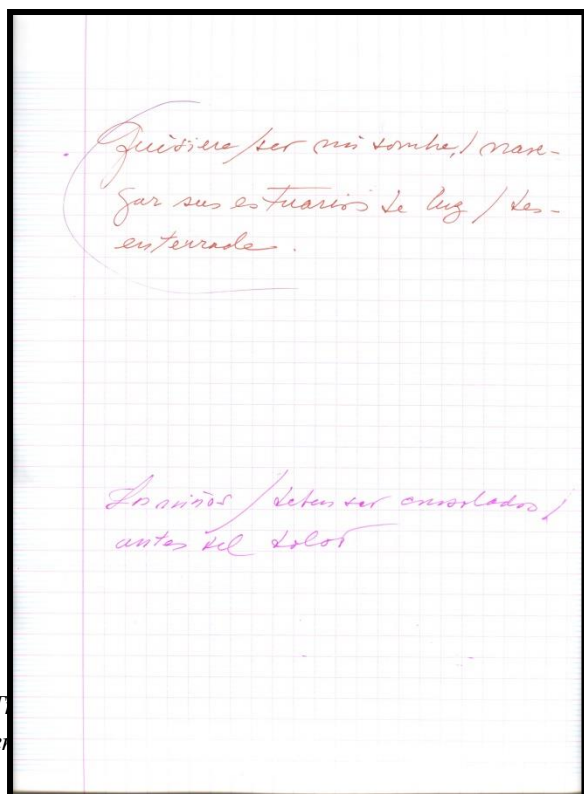 Quisiera / ser mi sombra, / nave-
gar sus estuarios de luz / des-
enterrada.
Los niños / deben ser consolados /
antes del dolor